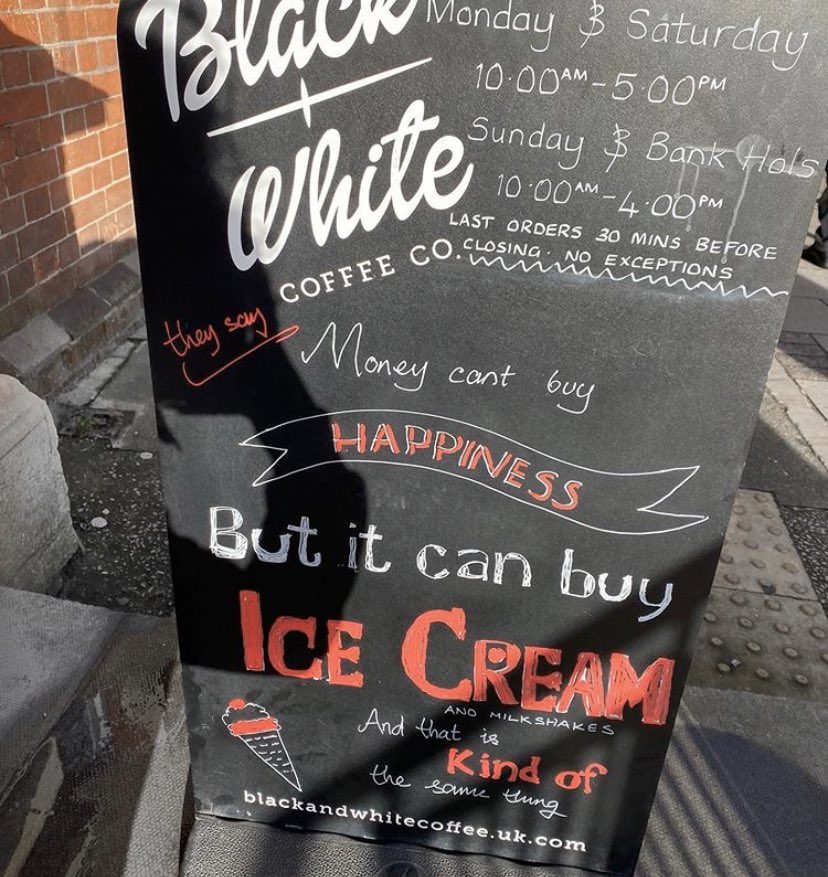 Black
+
White
COFFEE CO.
Monday & Saturday
10.00AM-5.00PM
Sunday & Bank Hols
10.00AM-4.00PM
LAST ORDERS 30 MINS BEFORE
CLOSING. NO EXCEPTIONS
they say
Money cant buy
HAPPINESS
But it can buy
ICE CREAM
AND MILKSHAKES
And that is
Kind of
the same thing
blackandwhitecoffee.uk.com